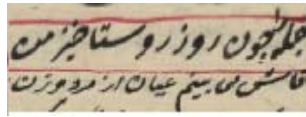 جمله را چون روز روستاخیز من
فاش می بینم عیان از مرد و زن